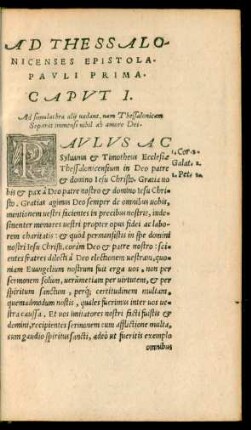 AD THESSALO
NICENSES EPISTOLA
PAVLI PRIMA.
CAPVT I.
Ad simulachra alij uadant, nam Thessalonicam
immensè nihil ab amore Dei.
PAVLVS AC
Syluanus & Timotheus Ecclesiæ
Thessalonicensium in Deo patre
& domino Iesu Christo. Gratia uo
bis & pax à Deo patre nostro & domino Iesu Chri
sto. Gratias agimus Deo semper de omnibus uobis,
mentionem uestri facientes in precibus nostris, inde
sinenter memores uestri propter opus fidei ac labo
rem charitatis: & quòd permansistis in spe domini
nostri Iesu Christi, coràm Deo & patre nostro: scien
tes fratres dilecti à Deo electionem uestram, quo
niam Euangelium nostrum fuit erga uos, non per
sermonem solum, uerumetiam per uirtutem, & per
spiritum sanctum, perq; certitudinem multam,
quemadmodum nostis, quales fuerimus inter uos ue
stra caussa. Et uos imitatores nostri facti fuistis &
domini, recipientes sermonem cum afflictione multa,
cum gaudio spiritus sancti, adeò ut fueritis exemplo
omnibus
1. Cor.
Galat. 1.
2. Pet.